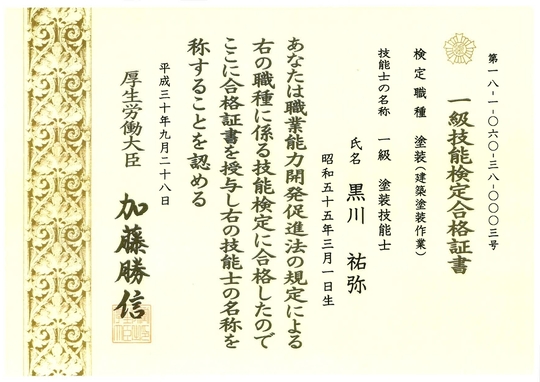 第一八-一-〇六〇-三八-〇〇〇三号
一級技能検定合格証書
検定職種 塗装（建築塗装作業）
技能士の名称 一級 塗装技能士
氏名 黒川 祐弥
昭和五十五年三月一日生
あなたは職業能力開発促進法の規定による
右の職種に係る技能検定に合格したので
ここに合格証書を授与し右の技能士の名称を
称することを認める
平成三十年九月二十八日
厚生労働大臣 加藤勝信